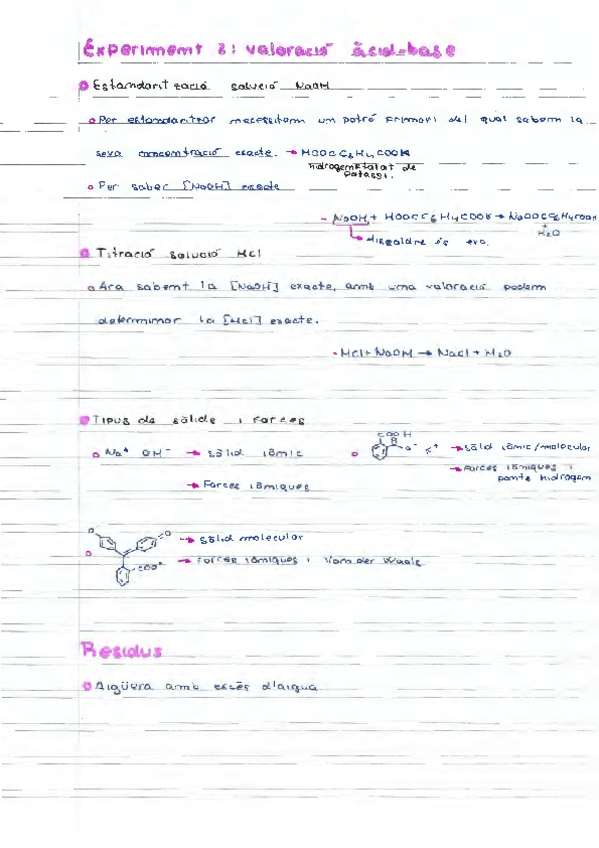 Experiment 2: valoració àcid-base
Estandarització solució NaOH
Per estandaritzar necessitem un patró primari del qual sabem la
seva concentració exacte. → HOOCC6H4COOK
hidrogenftalat de
potassi.
Per saber [NaOH] exacte
- NaOH + HOOCC6H4COOK → NaOOCC6H4COOK
+
H2O
Titració solució HCl
Ara sabent la [NaOH] exacte, amb una valoració podem
determinar la [HCl] exacte.
- HCl + NaOH → NaCl + H2O
Tipus de sòlids i forces
Na+ OH- → sòlid iònic
→ Forces iòniques
COOH
O- K+ → sòlid iònic/molecular
→ Forces iòniques i
ponts hidrogen
→ sòlid molecular
COO-
→ Forces iòniques i Van der Waals
Residus
Aigüera amb excés d'aigua